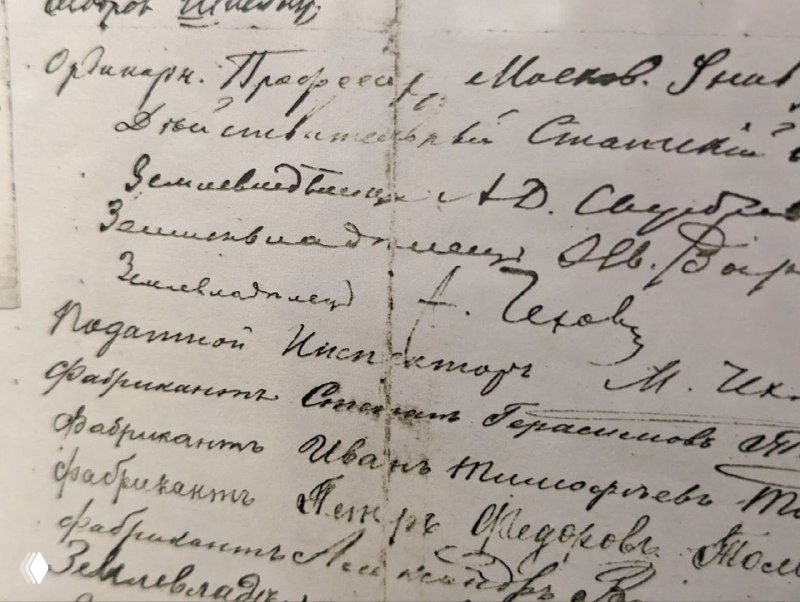 Ординарн. Профессоръ Москов. Унив
Дѣйствительный Статскій
Землевладѣлецъ А Д.
Землевладѣлецъ Ив.
Землевладѣлецъ А. Чеховъ
Податной Инспекторъ М. Чех
Фабрикантъ Степанъ Герасимовъ Т
Фабрикантъ Иванъ Тимофѣевъ То
Фабрикантъ Петръ Федоровъ Толи
Фабрикантъ
Землевладѣ